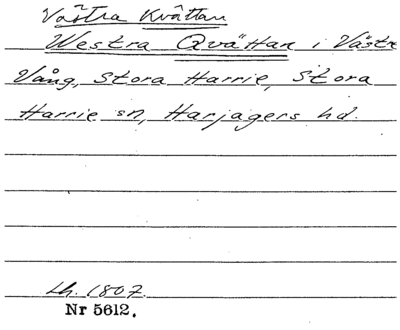 Västra Kvättan
Westra Qvättan i Västra
Vång, Stora Harrie, Stora
Harrie sn, Harjagers hd.
Lh. 1807.
Nr 5612.